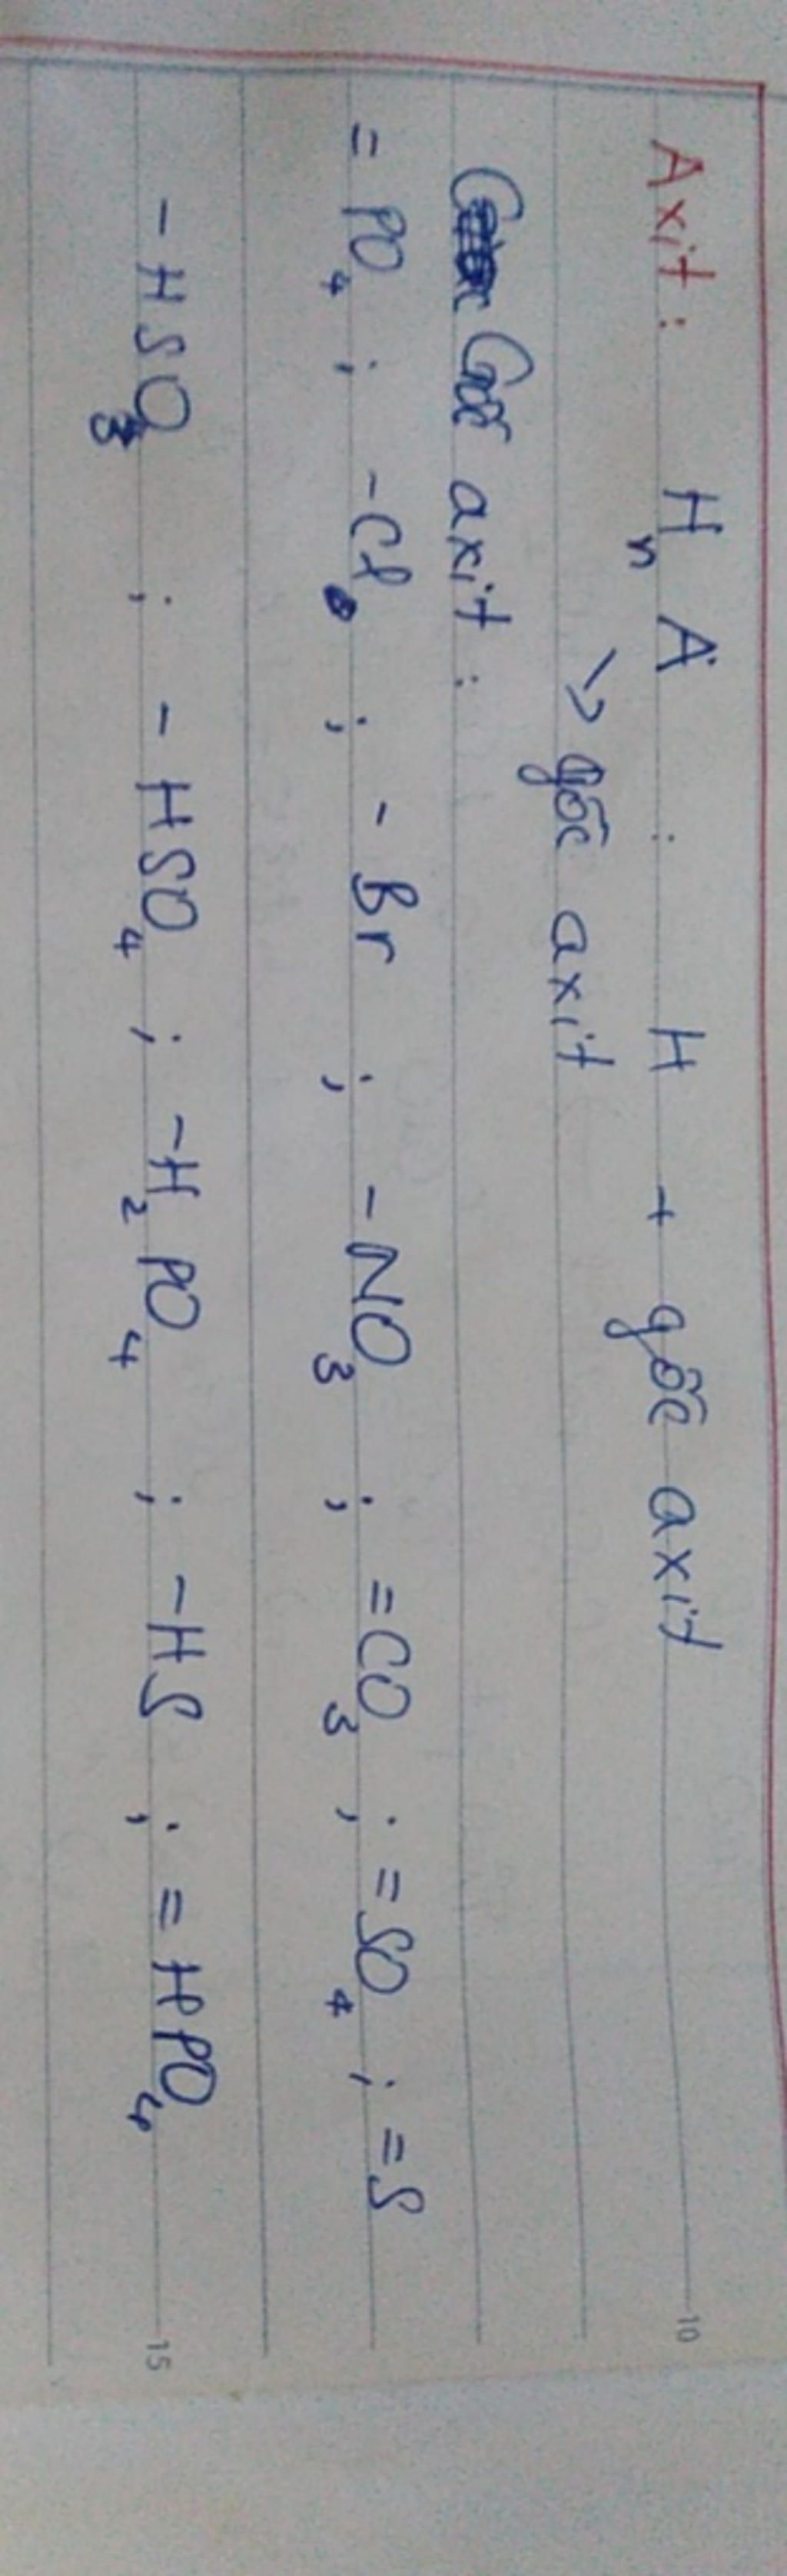 Axit : HₙA : H + gốc axit
↘ gốc axit
Gốc axit :
= PO₄ ; -Cl ; - Br ; - NO₃ ; = CO₃ ; = SO₄ ; = S
- HSO₃ ; - HSO₄ ; - H₂PO₄ ; - HS ; = HPO₄
10
15